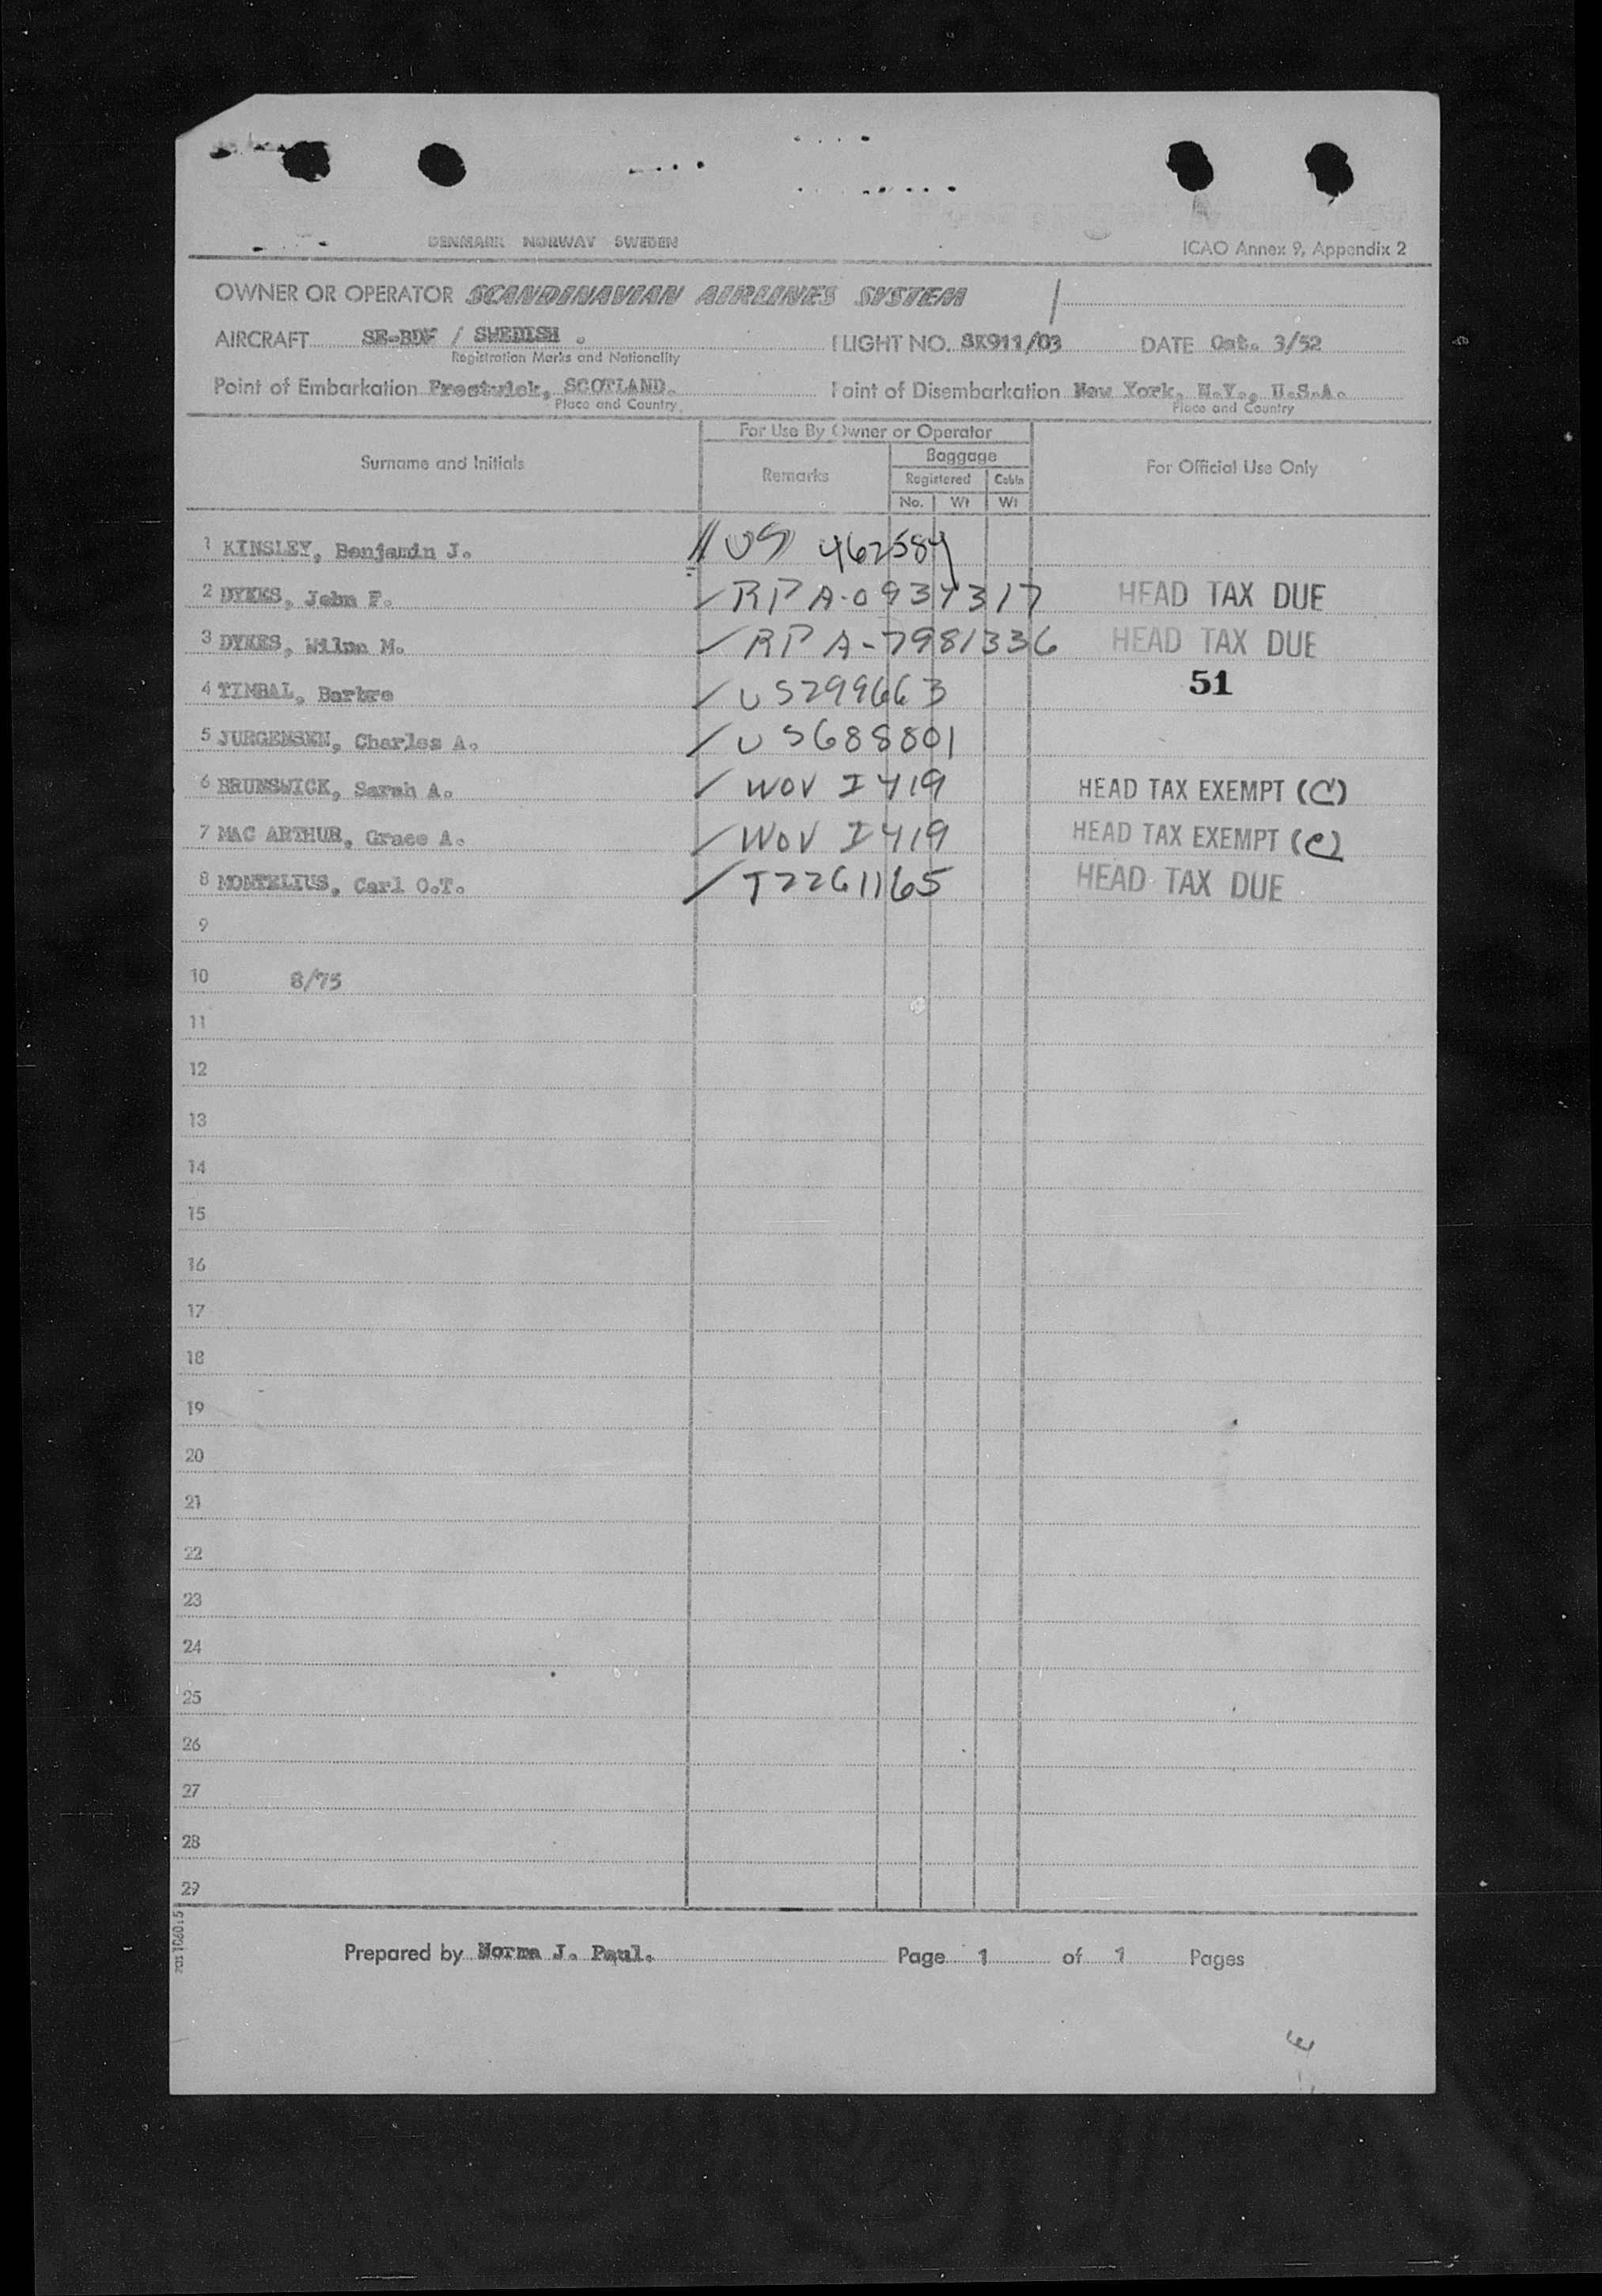 DENMARK NORWAY SWEDEN
ICAO Annex 9, Appendix 2
OWNER OR OPERATOR SCANDINAVIAN AIRLINES SYSTEM
AIRCRAFT SE-BDF / SWEDISH . FLIGHT NO. SK911/03 DATE Oct. 3/52
Registration Marks and Nationality
Point of Embarkation Prestwick, SCOTLAND. Point of Disembarkation New York, N.Y., U.S.A.
Place and Country Place and Country
For Use By Owner or Operator
Surname and Initials Remarks Baggage For Official Use Only
Registered Cabin
No. Wt Wt
1 KINSLEY, Benjamin J. US 462584
2 DYKES, John F. RP A-0934317 HEAD TAX DUE
3 DYKES, Wilma M. RP A-7981336 HEAD TAX DUE
51
4 TIMBAL, Barbro US299663
5 JURGENSEN, Charles A. US688801
6 BRUNSWICK, Sarah A. WOV I 419 HEAD TAX EXEMPT (C)
7 MAC ARTHUR, Grace A. WOV I 419 HEAD TAX EXEMPT (C)
8 MONTELIUS, Carl O.T. T2261165 HEAD TAX DUE
9
10 8/75
11
12
13
14
15
16
17
18
19
20
21
22
23
24
25
26
27
28
29
Prepared by Norma J. Paul. Page 1 of 1 Pages